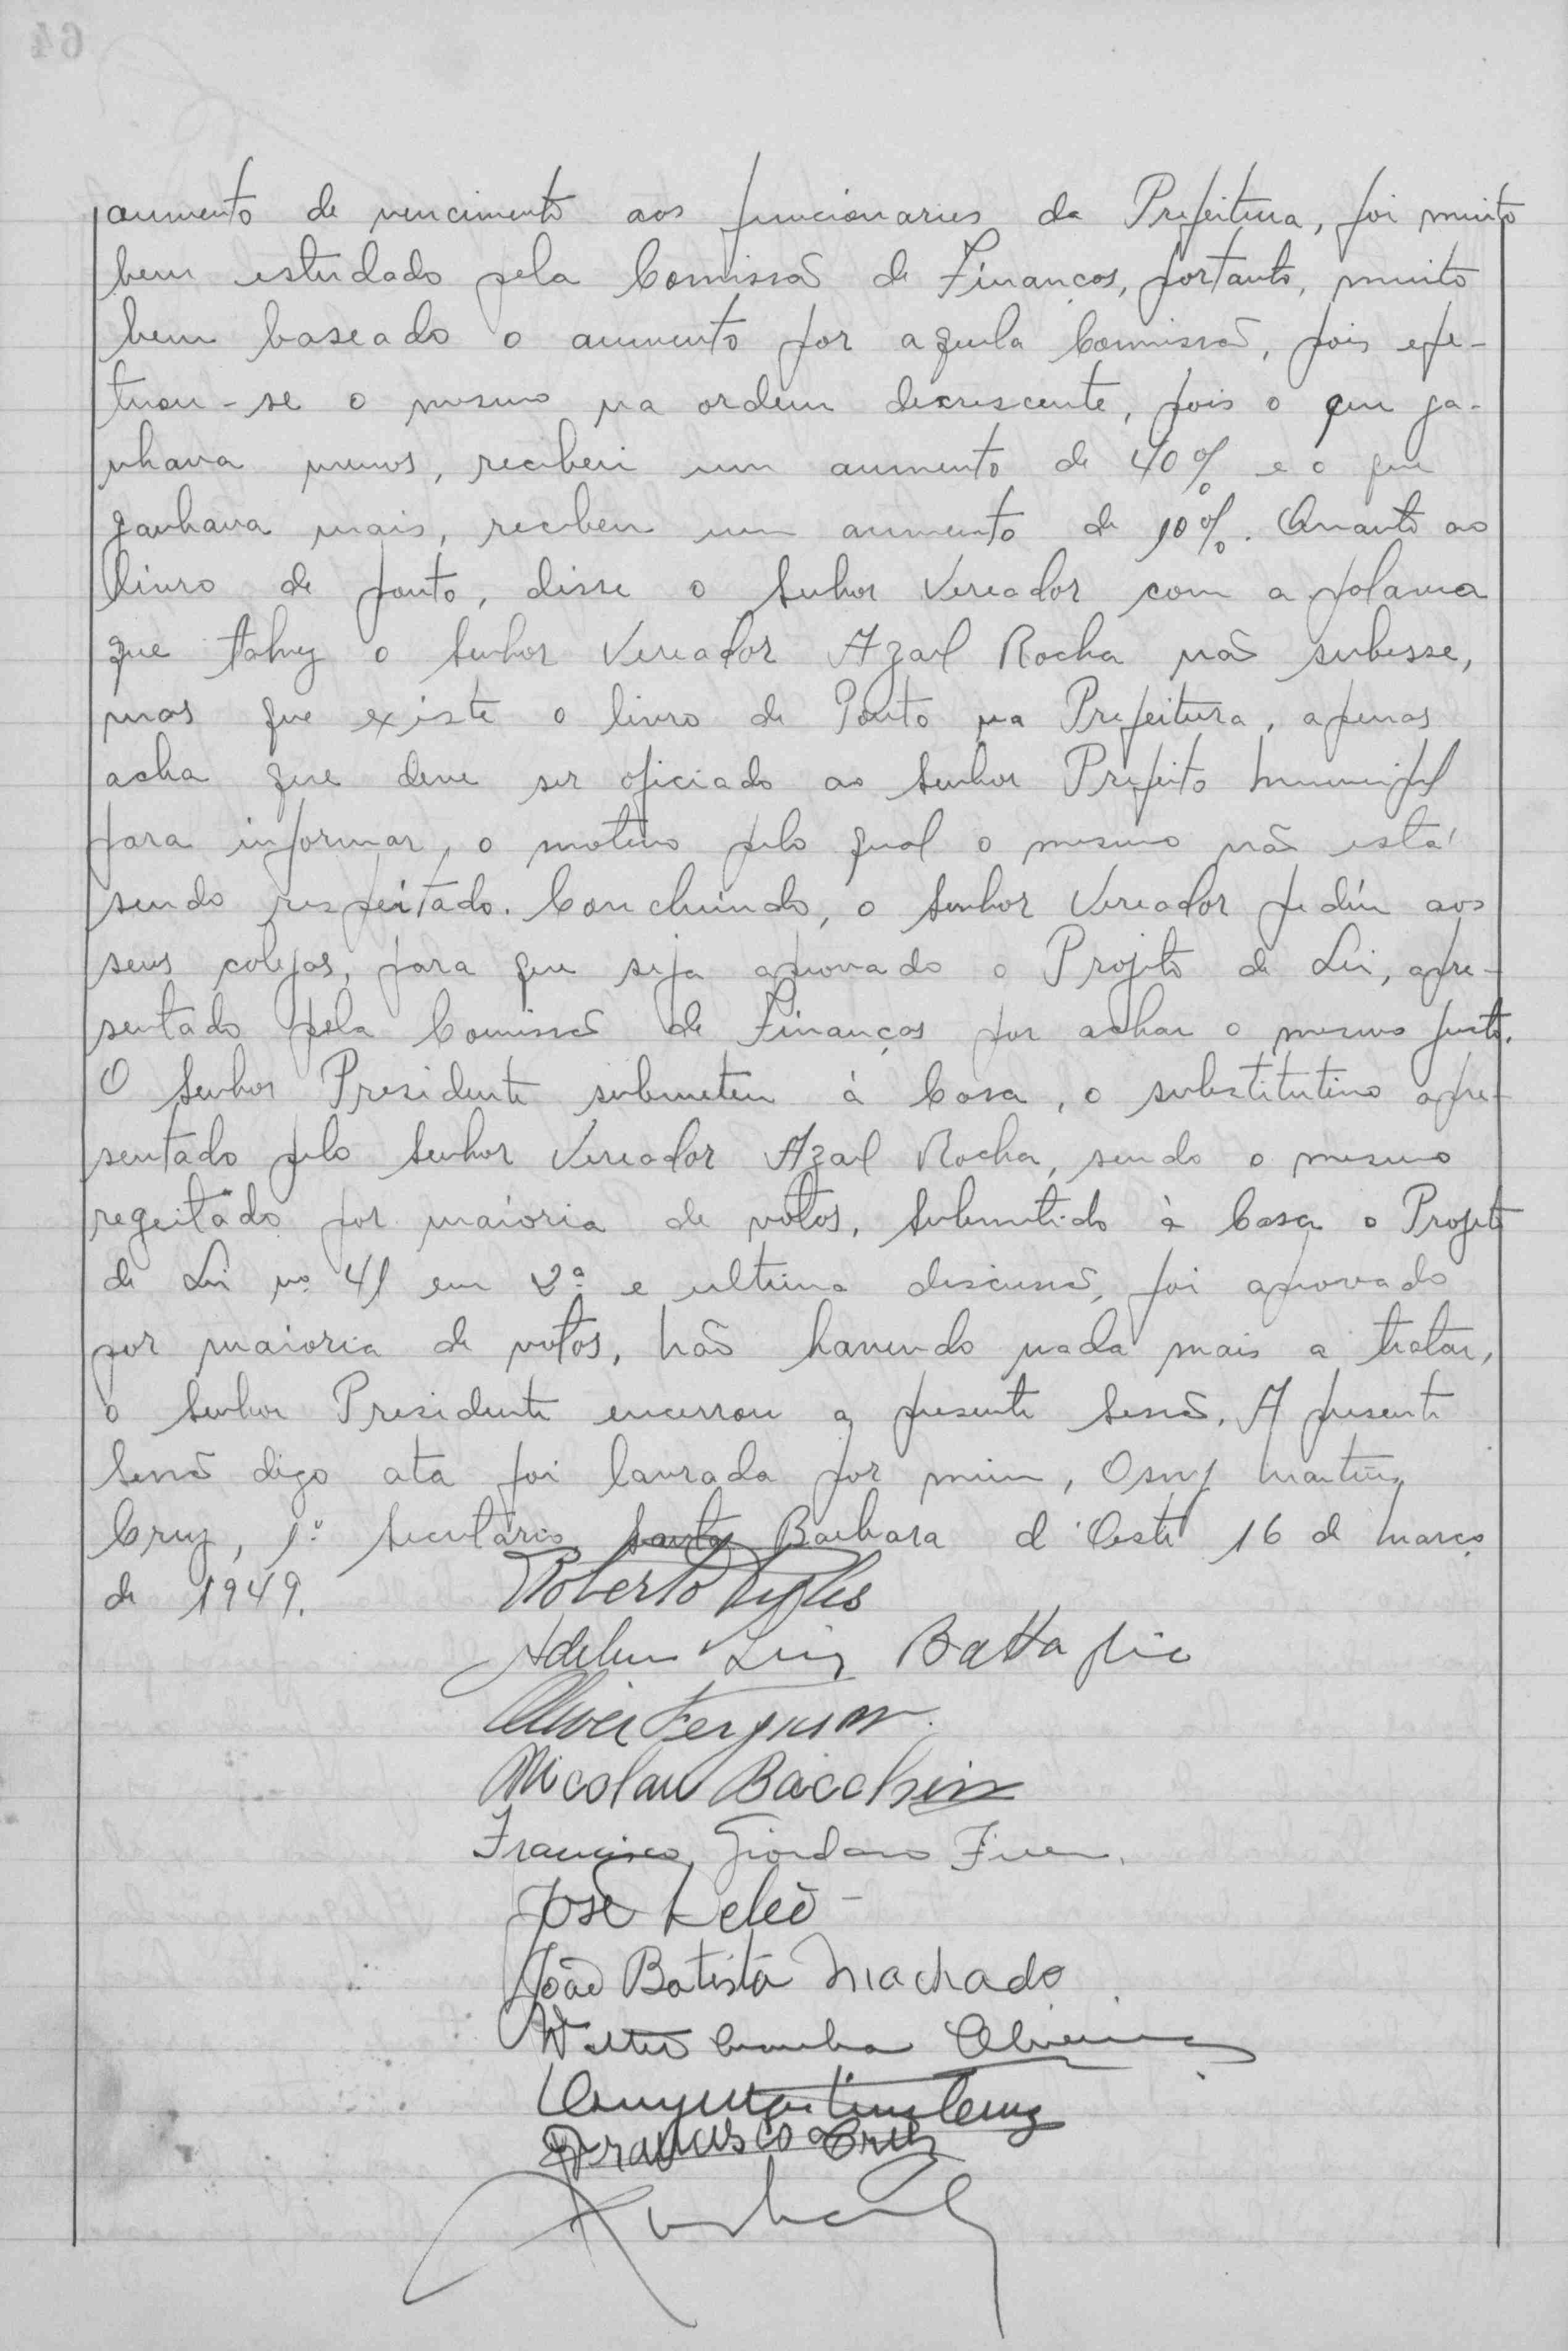 aumento de vencimento aos funcionarios da Prefeitura, foi muito
bem estudado pela Comissão de Finanças, portanto, muito
bem baseado o aumento por aquela Comissão, pois efe-
tuou-se o mesmo na ordem decrescente, pois o que ga-
nhava menos, recebeu um aumento de 40% e o que
ganhava mais, recebeu um aumento de 10%. Quanto ao
livro de ponto, disse o Senhor Vereador com a palavra
que talvez o Senhor Vereador Azael Rocha não subesse,
mas que existe o livro de Ponto na Prefeitura, apenas
acha que deve ser oficiado ao Senhor Prefeito Municipal
para informar, o motivo pelo qual o mesmo não está
sendo respeitado. Concluindo, o Senhor Vereador pediu aos
seus colegas, para que seja aprovado o Projeto de Lei, apre-
sentado pela Comissão de Finanças por achar o mesmo justo.
O Senhor Presidente submeteu à Casa, o substitutivo apre-
sentado pelo Senhor Vereador Azael Rocha, sendo o mesmo
regeitado por maioria de votos. Submetido à Casa o Projeto
de Lei nº 41 em 2ª e ultima discussão, foi aprovado
por maioria de votos, Não havendo nada mais a tratar,
o Senhor Presidente encerrou a presente Sessão. A presente
Sessão digo ata foi lavrada por mim, Osny Martins
Cruz, 1º Secretário Santa Barbara d'Oeste 16 de Março
de 1949.
Roberto
Luiz Battaglia
Oliver Ferguson
Nicolau Bacchin
Francisco Giordano
José
João Batista Machado
Oliveira
Osny Martins Cruz
Francisco Cruz
64